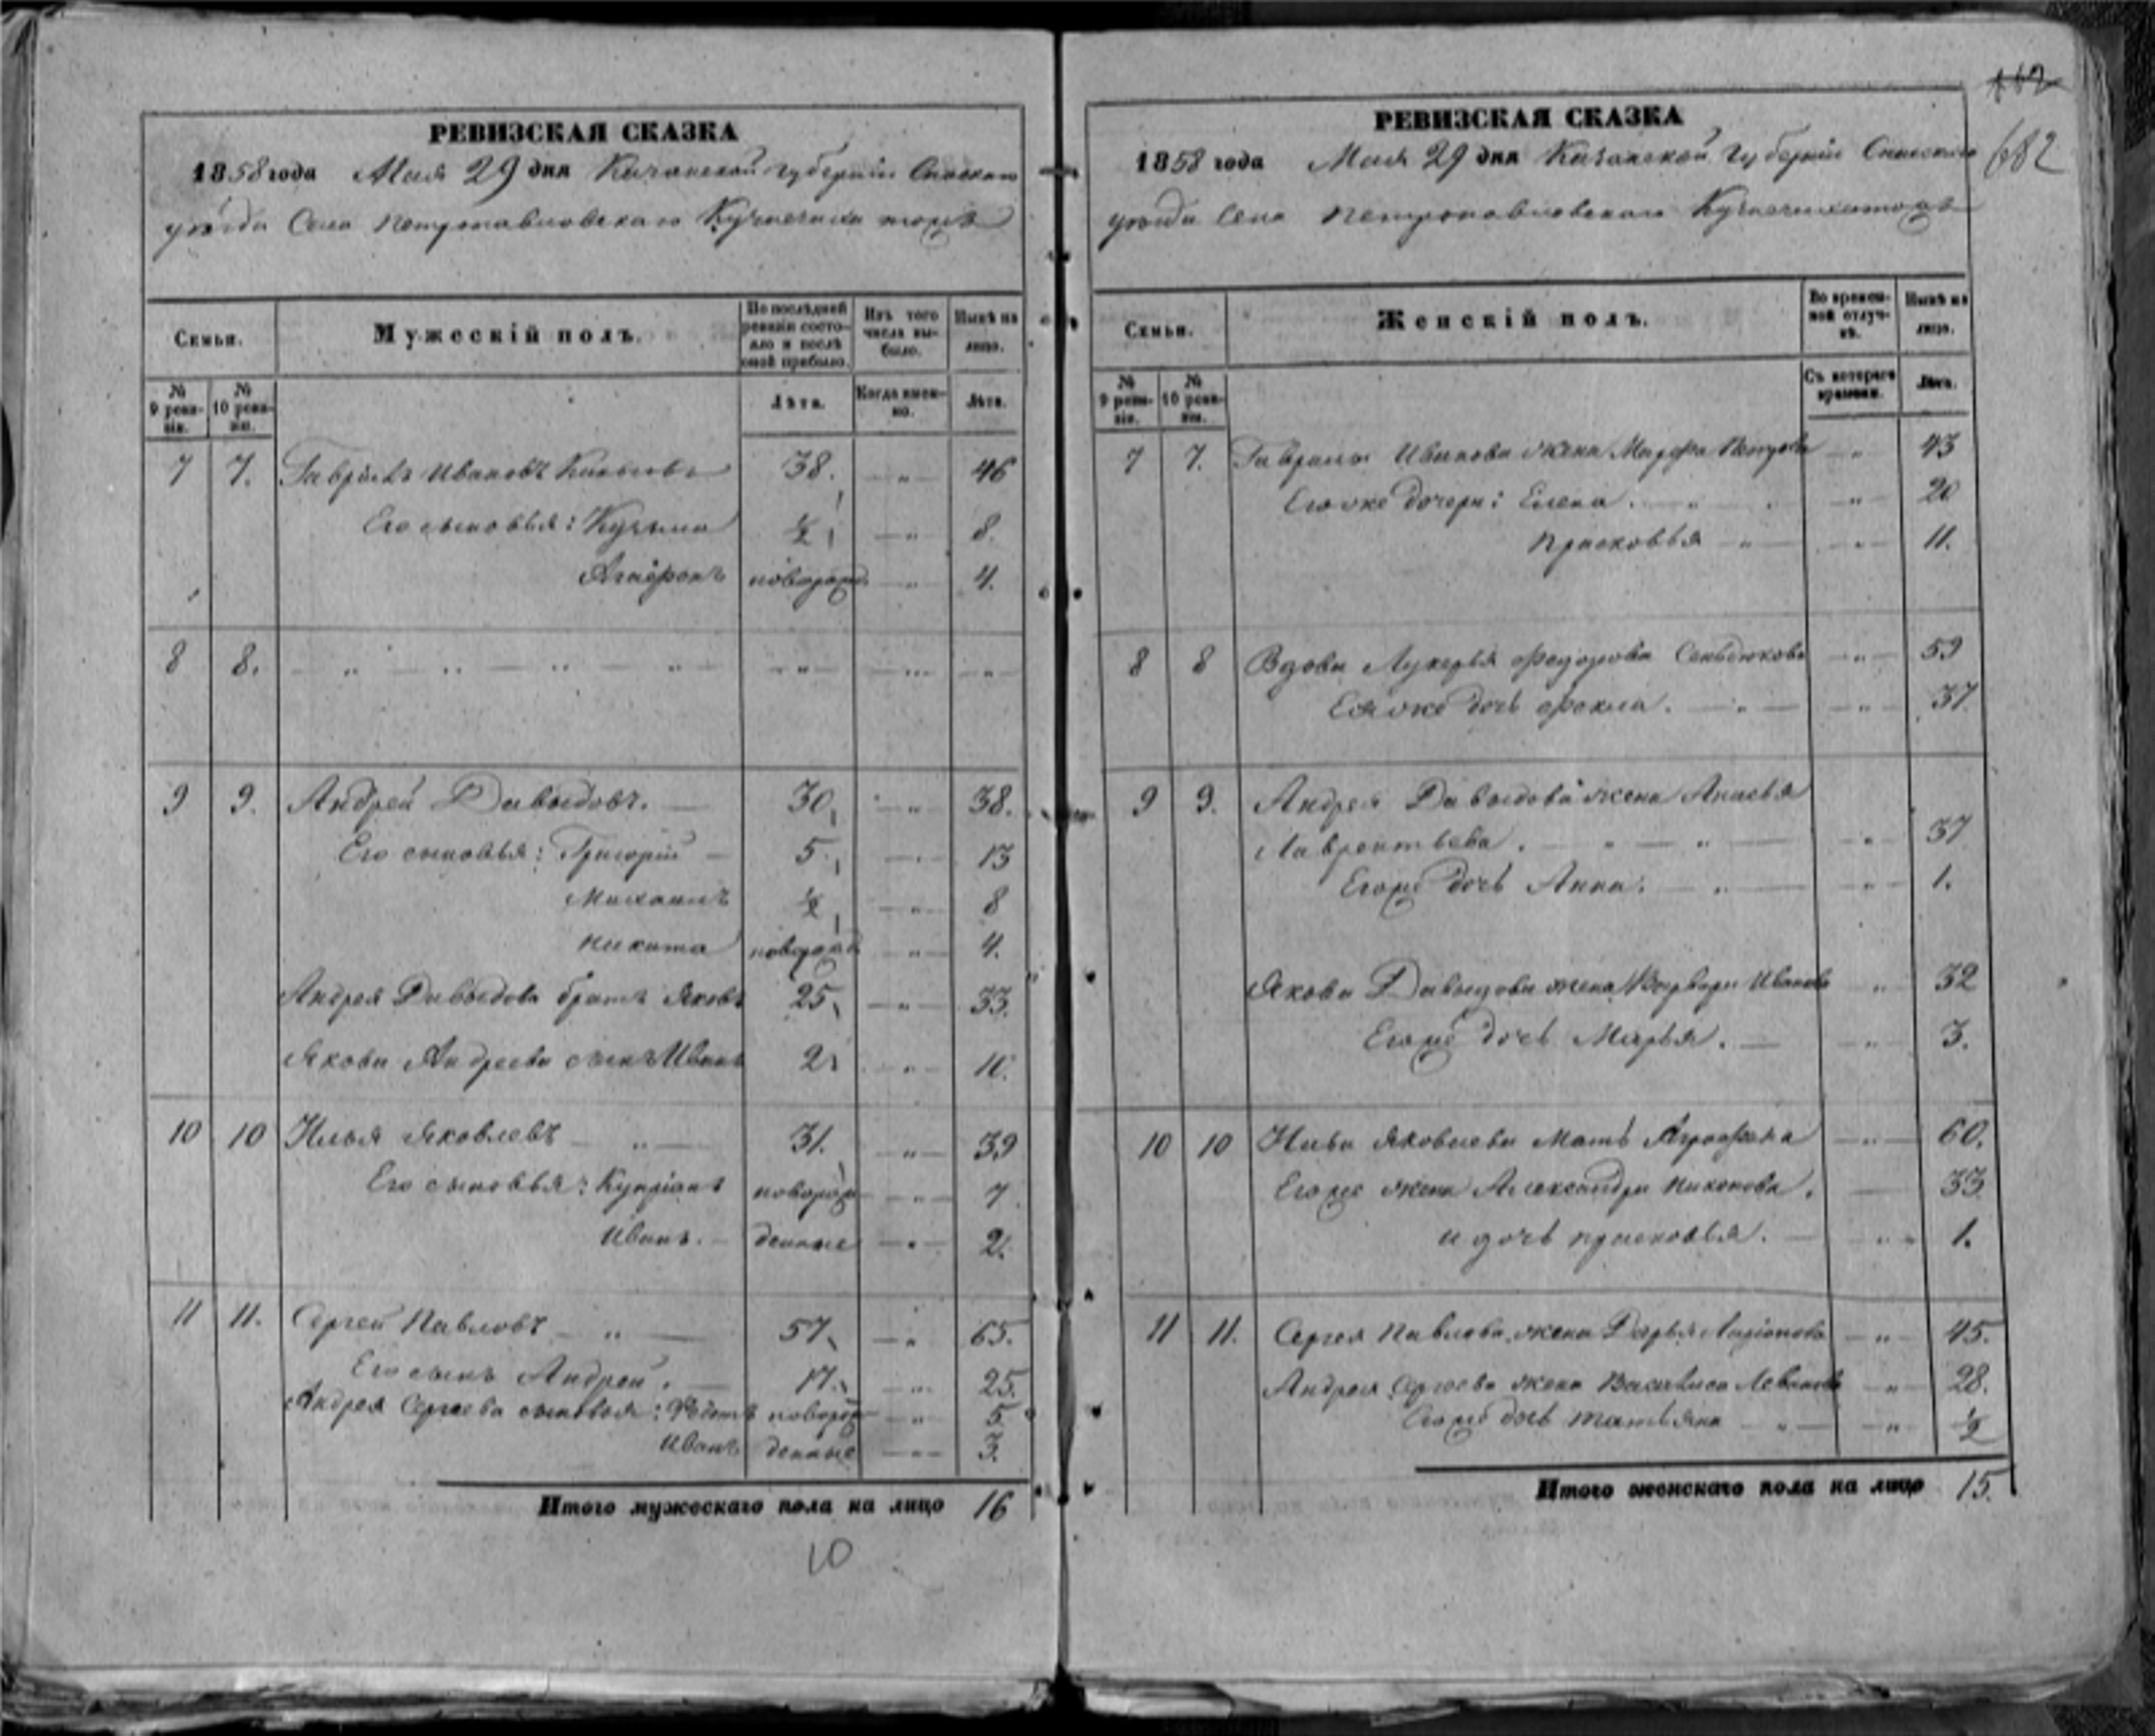 РЕВИЗСКАЯ СКАЗКА
1858 года Мая 29 дня Казанской губернiи Спаскаго
уѣзда Села Петропавловскаго Кузнечиха тожъ
Семьи.
Мужескiй полъ.
По послѣдней ревизiи состояло и послѣ оной прибыло.
Изъ того числа выбыло.
Нынѣ на лицо.
№ 9 ревизiи.
№ 10 ревизiи.
Лѣта.
Когда именно.
Лѣта.
7 7. Гаврiилъ Ивановъ 38. — „ — 46
Его сыновья: Кузьма ½ — „ — 8.
Агафонъ новорож — „ — 4.
8 8. — „ — „ — „ — „ — „ — „ — „ —
9 9. Андрей Давыдовъ. — 30, — „ — 38.
Его сыновья: Григорiй — 5, — „ — 13
Михаилъ ½, — „ — 8
Никита новорож — „ — 4.
Андрея Давыдова братъ Яковъ 25, — „ — 33.
Якова Андреева сынъ Иванъ 2 — „ — 10.
10 10 Илья Яковлевъ — „ — 31. — „ — 39
Его сыновья: Купрiянъ новорож — „ — 7
Иванъ. — денные — „ — 2.
11 11. Сергей Павловъ — „ — 57, — „ — 65.
Его сынъ Андрей. — 17. — „ — 25.
Андрея Сергеева сыновья: Федотъ новорож — „ — 5.
Иванъ денные — „ — 3.
Итого мужескаго пола на лицо 16
10
682
РЕВИЗСКАЯ СКАЗКА
1858 года Мая 29 дня Казанской Губернiи Спаскаго
уѣзда Села Петропавловскаго Кузнечиха тожъ
Семьи.
Женскiй полъ.
Во временной отлучкѣ.
Нынѣ на лицо.
№ 9 ревизiи.
№ 10 ревизiи.
Съ котораго времени.
Лѣта.
7 7. Гаврила Иванова жена Марфа Петрова — „ 43
Его же дочери: Елена. — „ — 20
Прасковья — „ — „ — 11.
8 8 Вдова Лукерья Федорова — „ — 59
Ея же дочь Фекла. — „ — „ — 37
9 9. Андрея Давыдова жена Анисья
Лаврентьева. — „ — „ — „ — 37
Егоже дочь Анна. — „ — „ — 1.
Якова Давыдова жена Варвара Иванова „ — 32
Егоже дочь Марья. — „ — 3.
10 10 Ильи Яковлева Мать Агрофена — „ — 60.
Егоже жена Александра Никонова. — 33
и дочь Прасковья. — „ — 1.
11 11. Сергея Павлова жена Дарья Ларiонова — „ — 45.
Андрея Сергеева жена Василиса Леванова — „ — 28.
Егоже дочь Татьяна — „ — „ — ½
Итого женскаго пола на лицо 15.